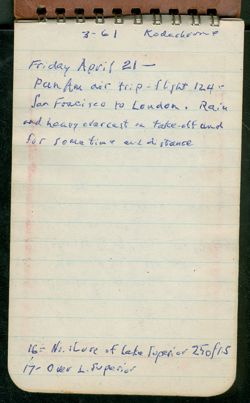 3-61 Kodachrome
Friday April 21 —
Pan Am air trip - flight 124 -
San Francisco to London. Rain
and heavy overcast on take-off and
for some time and distance
16 - No. shore of Lake Superior 250 f1.5
17 - Over L. Superior